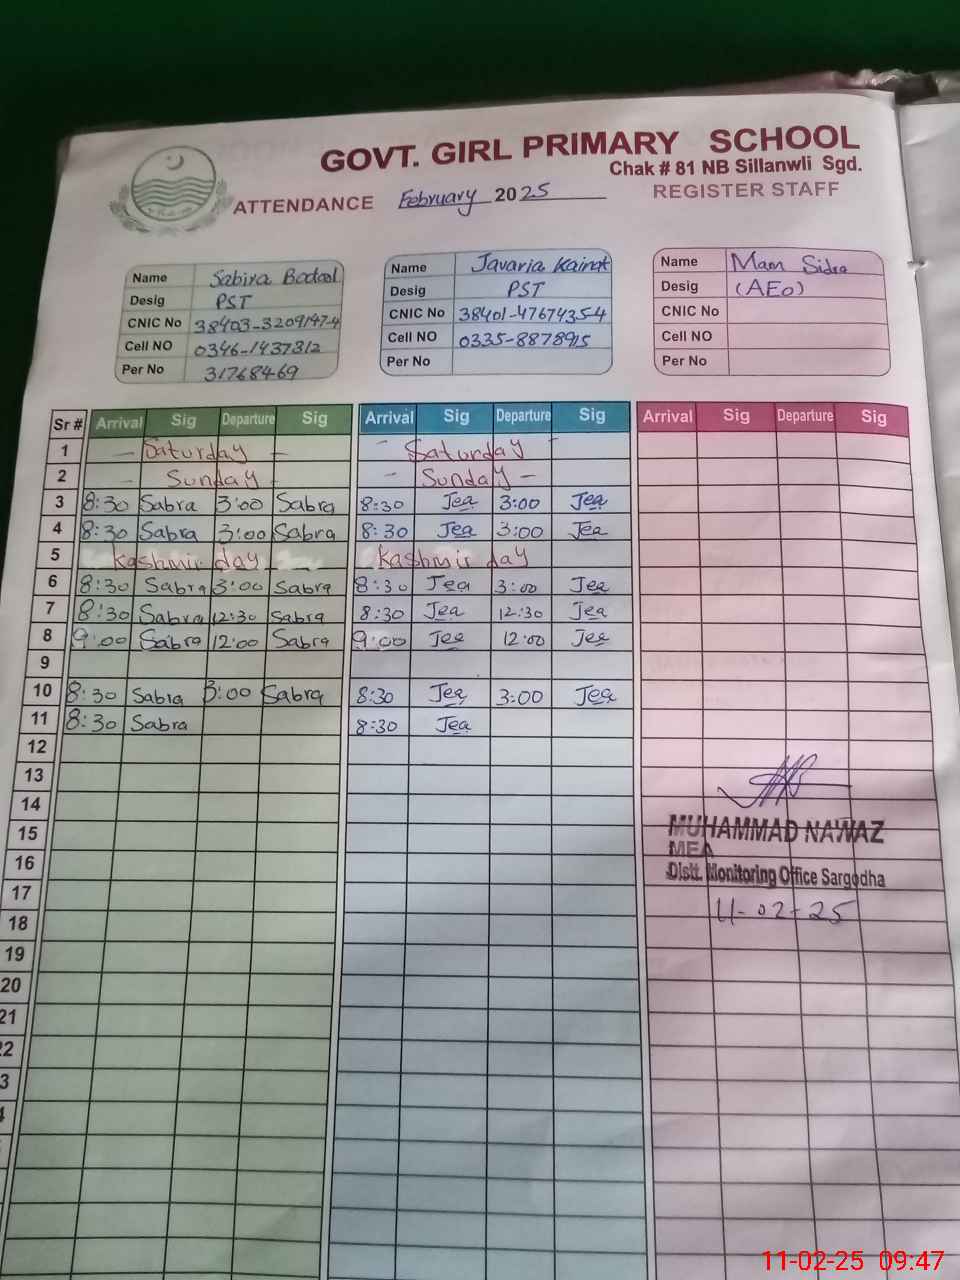 GOVT. GIRL PRIMARY SCHOOL
Chak # 81 NB Sillanwli Sgd.
ATTENDANCE February 2025 REGISTER STAFF
Name Sabira Batool
Desig PST
CNIC No 38403-3209147-4
Cell NO 0346-1437312
Per No 31768469
Name Javaria Kainat
Desig PST
CNIC No 38401-4767435-4
Cell NO 0335-8878915
Per No
Name Mam Sidra
Desig (AEO)
CNIC No
Cell NO
Per No
Sr # Arrival Sig Departure Sig Arrival Sig Departure Sig Arrival Sig Departure Sig
1 - Saturday - - Saturday -
2 - Sunday - - Sunday -
3 8:30 Sabra 3:00 Sabra 8:30 Jea 3:00 Jea
4 8:30 Sabra 3:00 Sabra 8:30 Jea 3:00 Jea
5 Kashmir day Kashmir day
6 8:30 Sabra 3:00 Sabra 8:30 Jea 3:00 Jea
7 8:30 Sabra 12:30 Sabra 8:30 Jea 12:30 Jea
8 9:00 Sabra 12:00 Sabra 9:00 Jea 12:00 Jea
9
10 8:30 Sabra 3:00 Sabra 8:30 Jea 3:00 Jea
11 8:30 Sabra 8:30 Jea
12
13
14
15 MUHAMMAD NAWAZ
16 MEA
Distt. Monitoring Office Sargodha
17
18 11-02-25
19
20
21
22
3
11-02-25 09:47